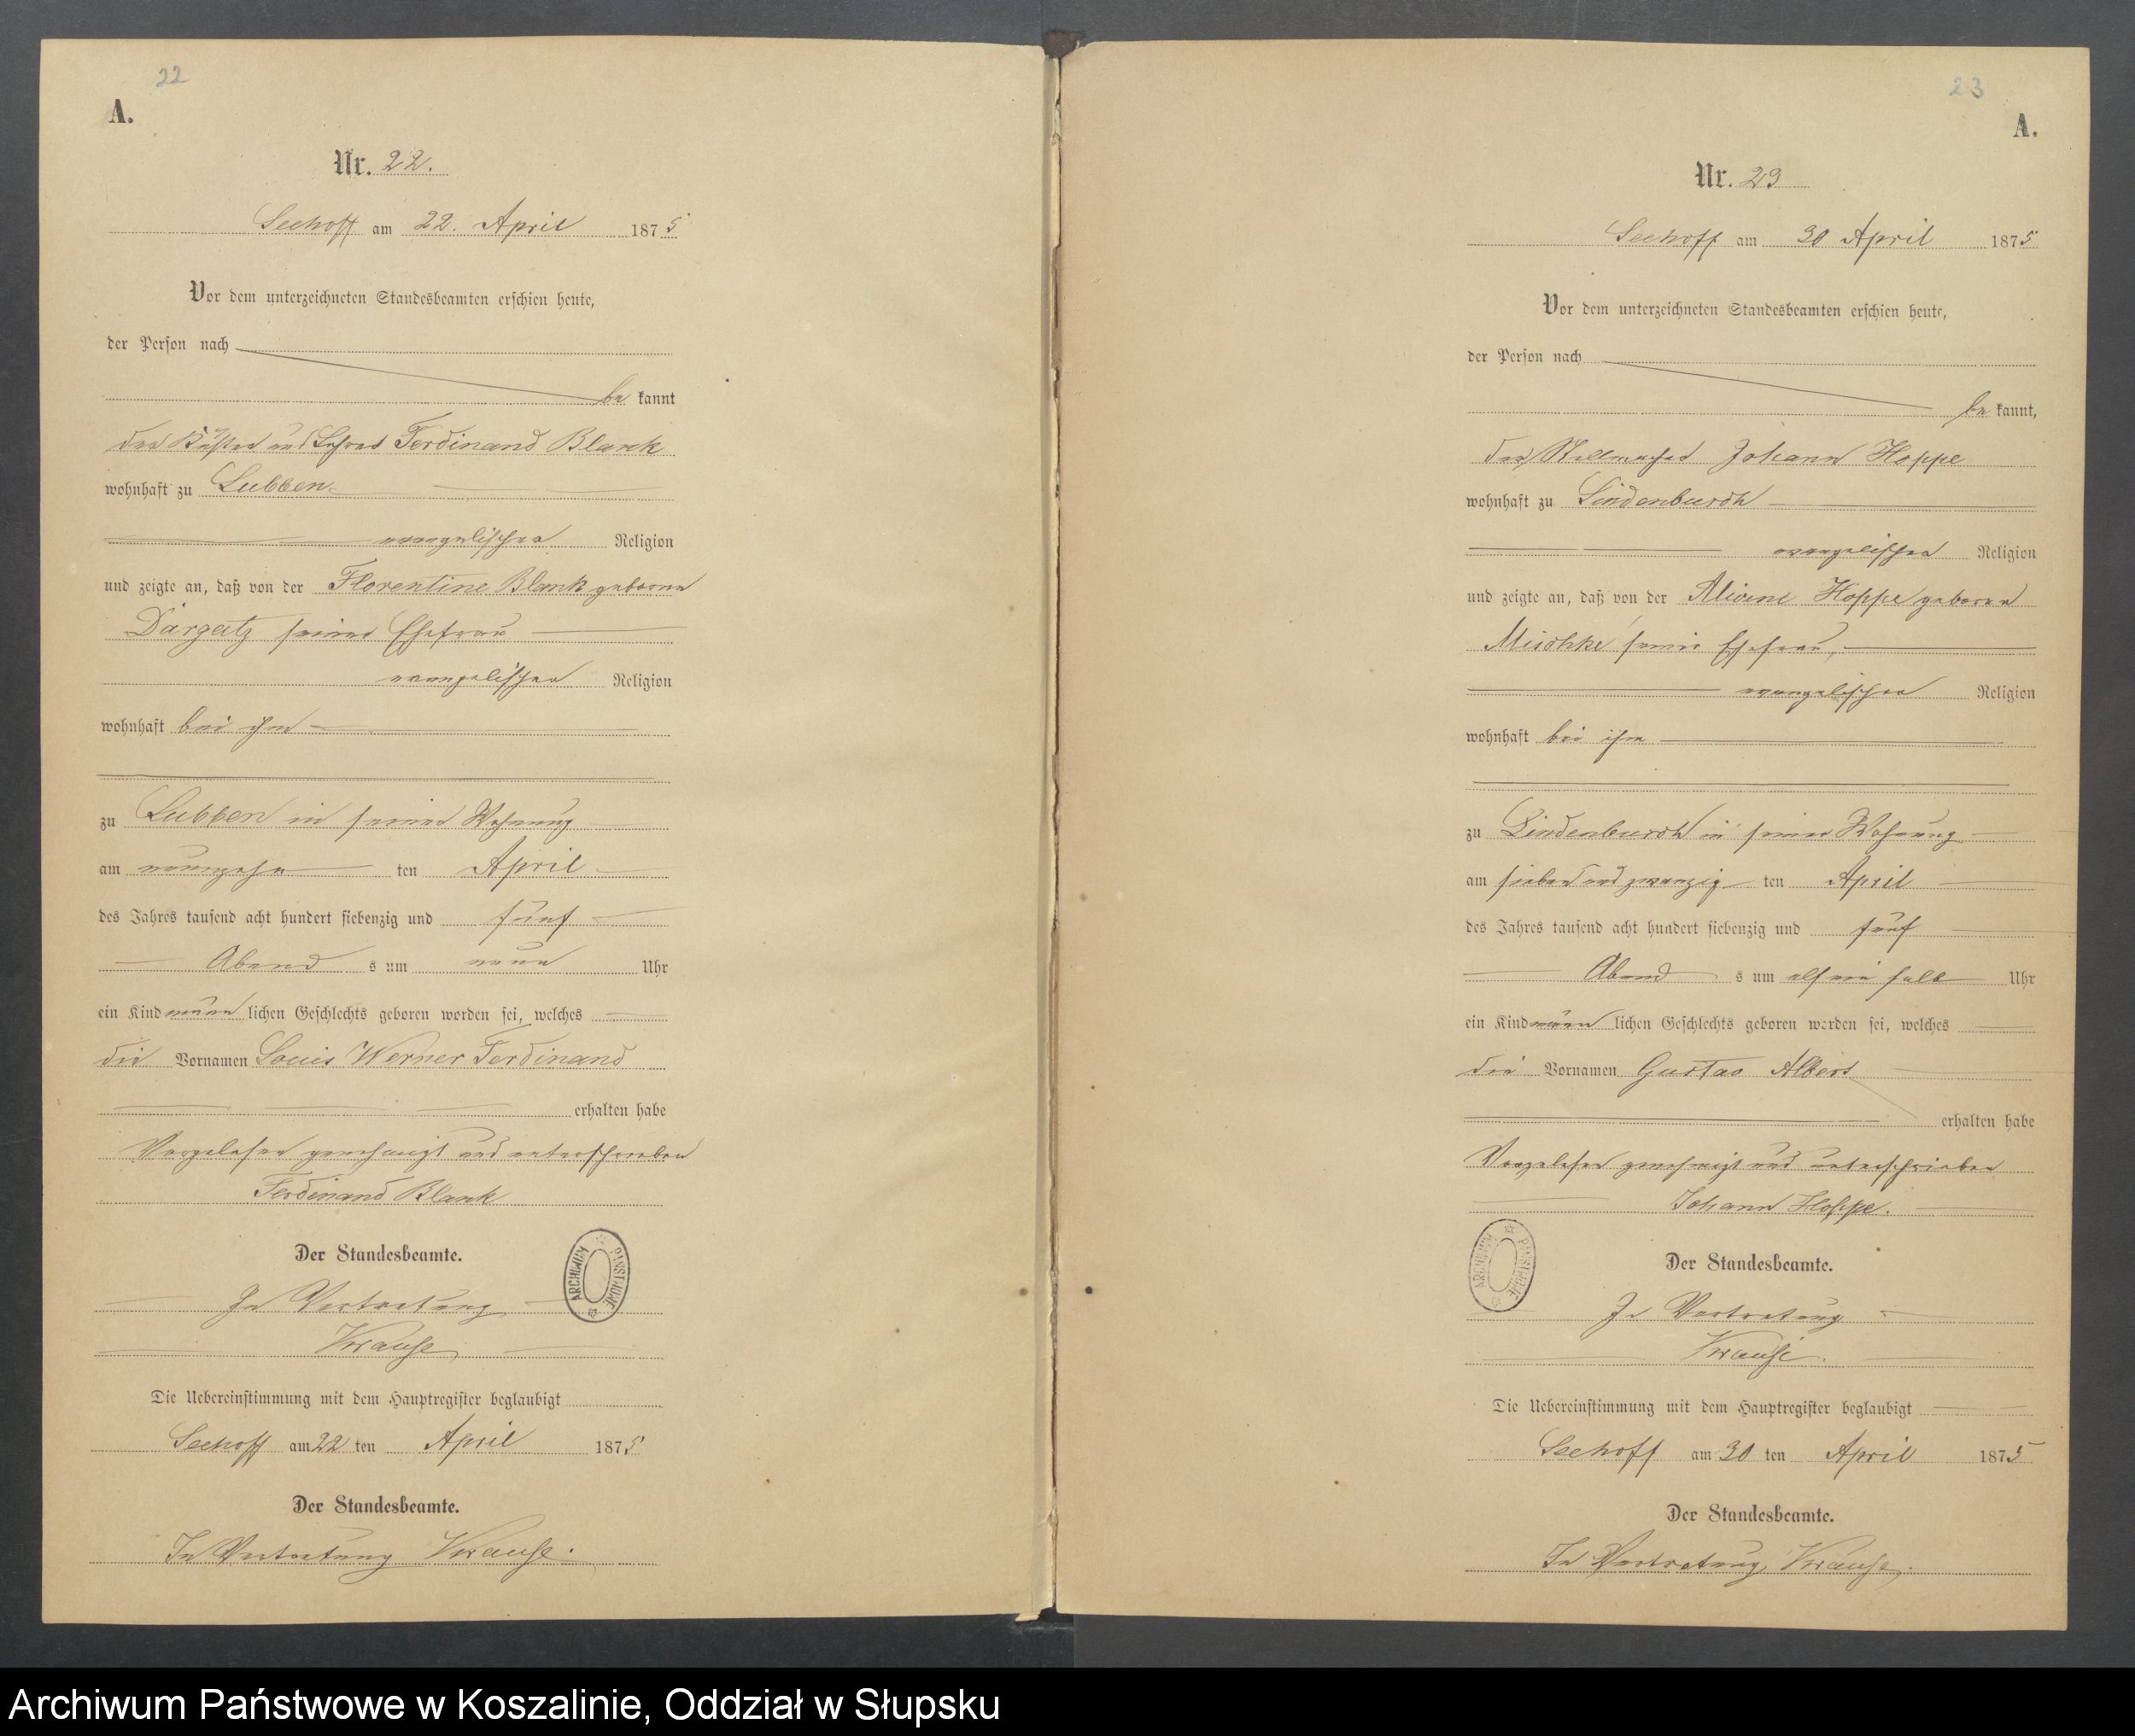 22
A.
Nr. 22.
Seehoff am 22. April 1875
Vor dem unterzeichneten Standesbeamten erschien heute,
der Person nach
be kannt
der Küster und Lehrer Ferdinand Blank
wohnhaft zu Lubben
evangelischer Religion
und zeigte an, daß von der Florentine Blank geborne
Dargatz seiner Ehefrau
evangelischer Religion
wohnhaft bei ihm
zu Lubben in seiner Wohnung
am neunzehn ten April
des Jahres tausend acht hundert siebenzig und fünf
Abend s um neun Uhr
ein Kind männ lichen Geschlechts geboren worden sei, welches
die Vornamen Louis Werner Ferdinand
erhalten habe
Vorgelesen genehmigt und unterschrieben
Ferdinand Blank
Der Standesbeamte.
ARCHIWUM PAŃSTWOWE
In Vertretung
Krause
Die Uebereinstimmung mit dem Hauptregister beglaubigt
Seehoff am 22 ten April 1875
Der Standesbeamte.
In Vertretung Krause.
23
A.
Nr. 23
Seehoff am 30 April 1875
Vor dem unterzeichneten Standesbeamten erschien heute,
der Person nach
be kannt,
der Stellmacher Johann Hoppe
wohnhaft zu Lindenbusch
evangelischer Religion
und zeigte an, daß von der Alwine Hoppe geboren
Mischke seiner Ehefrau,
evangelischer Religion
wohnhaft bei ihm
zu Lindenbusch in seiner Wohnung
am sieben und zwanzig ten April
des Jahres tausend acht hundert siebenzig und fünf
Abend s um elf ein halb Uhr
ein Kind männ lichen Geschlechts geboren worden sei, welches
die Vornamen Gustav Albert
erhalten habe
Vorgelesen genehmigt und unterschrieben
Johann Hoppe.
ARCHIWUM PAŃSTWOWE
Der Standesbeamte.
In Vertretung
Krause.
Die Uebereinstimmung mit dem Hauptregister beglaubigt
Seehoff am 30 ten April 1875
Der Standesbeamte.
In Vertretung Krause.
Archiwum Państwowe w Koszalinie, Oddział w Słupsku